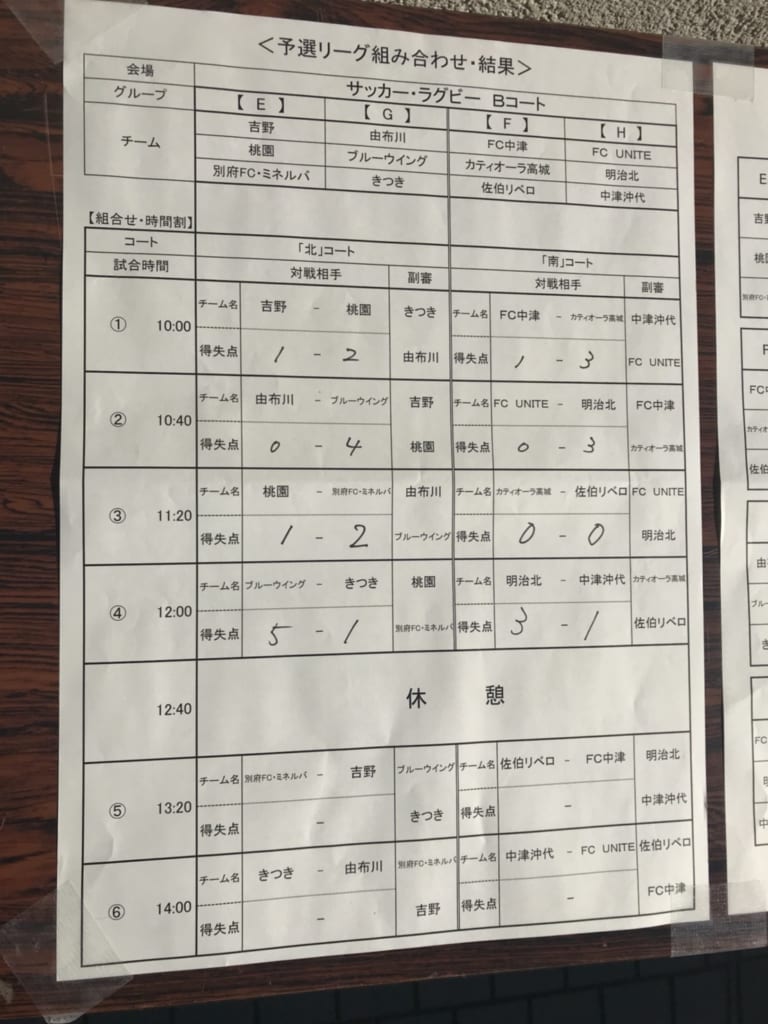 ＜予選リーグ組み合わせ・結果＞
会場 サッカー・ラグビー Bコート
グループ 【 E 】 【 G 】 【 F 】 【 H 】
チーム 吉野 由布川 FC中津 FC UNITE
桃園 ブルーウイング カティオーラ高城 明治北
別府FC・ミネルバ きつき 佐伯リベロ 中津沖代
【組合せ・時間割】
コート 「北」コート 「南」コート
試合時間 対戦相手 副審 対戦相手 副審
① 10:00 チーム名 吉野 － 桃園 きつき チーム名 FC中津 － カティオーラ高城 中津沖代
得失点 1 － 2 由布川 得失点 1 － 3 FC UNITE
② 10:40 チーム名 由布川 － ブルーウイング 吉野 チーム名 FC UNITE － 明治北 FC中津
得失点 0 － 4 桃園 得失点 0 － 3 カティオーラ高城
③ 11:20 チーム名 桃園 － 別府FC・ミネルバ 由布川 チーム名 カティオーラ高城 － 佐伯リベロ FC UNITE
得失点 1 － 2 ブルーウイング 得失点 0 － 0 明治北
④ 12:00 チーム名 ブルーウイング － きつき 桃園 チーム名 明治北 － 中津沖代 カティオーラ高城
得失点 5 － 1 別府FC・ミネルバ 得失点 3 － 1 佐伯リベロ
12:40 休 憩
⑤ 13:20 チーム名 別府FC・ミネルバ － 吉野 ブルーウイング チーム名 佐伯リベロ － FC中津 明治北
得失点 － きつき 得失点 － 中津沖代
⑥ 14:00 チーム名 きつき － 由布川 別府FC・ミネルバ チーム名 中津沖代 － FC UNITE 佐伯リベロ
得失点 － 吉野 得失点 － FC中津